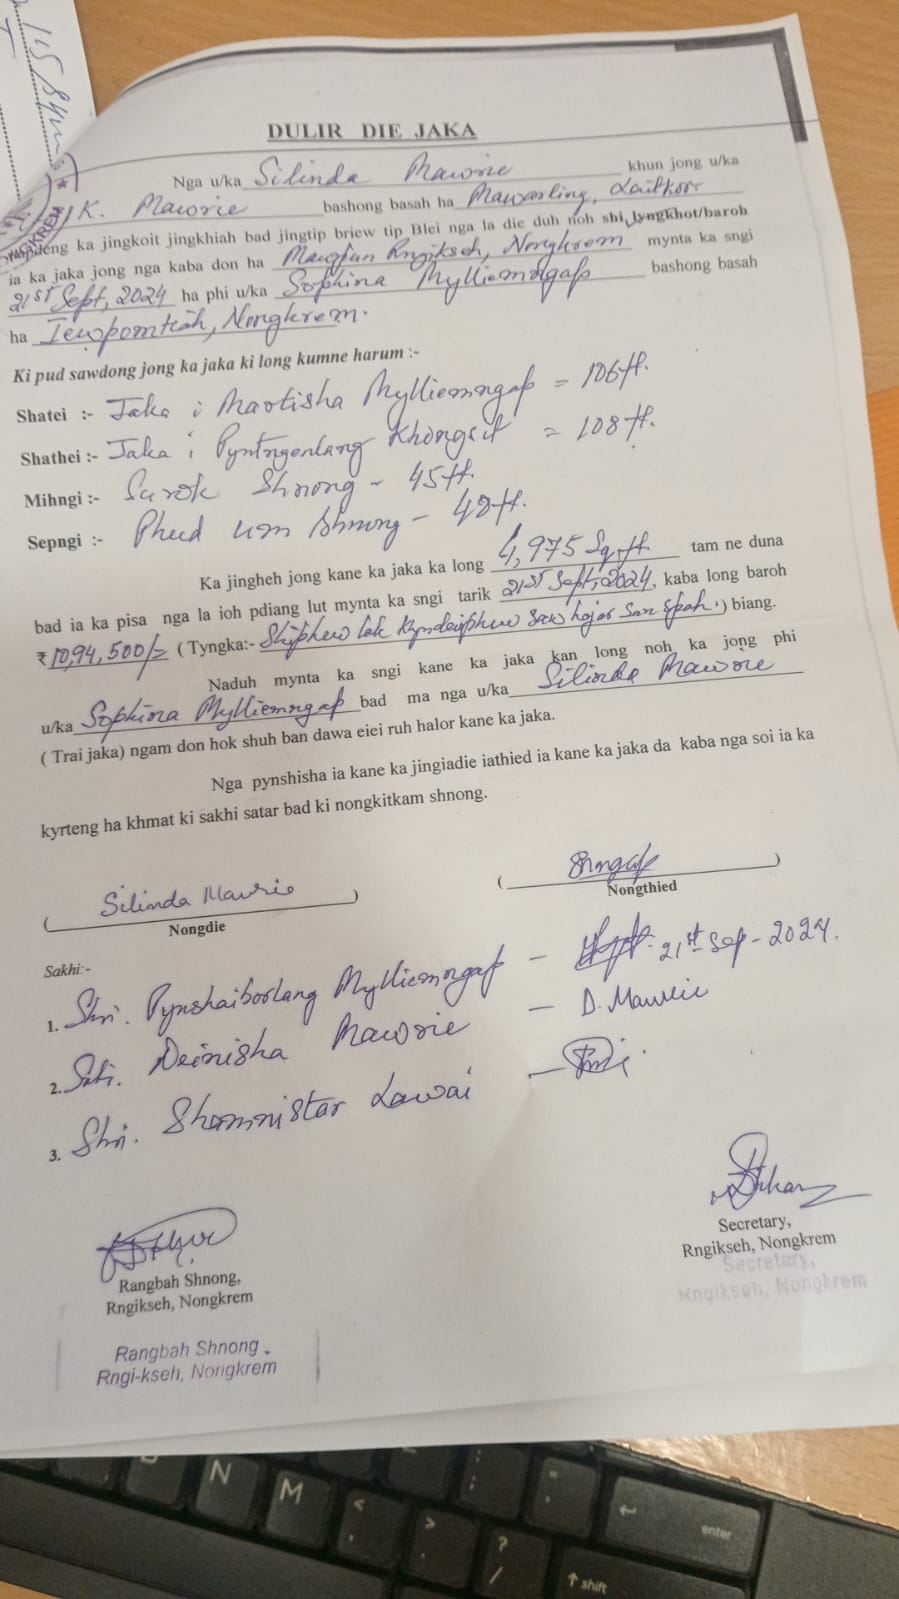 DULIR DIE JAKA
Nga u/ka Silinda Mawrie khun jong u/ka
K. Mawrie bashong basah ha Mawarling, Laitkor
ka jingkoit jingkhiah bad jingtip briew tip Blei nga la die duh noh shi lyngkhot/baroh
ia ka jaka jong nga kaba don ha Rngikseh, Nongkrem mynta ka sngi
21st Sept, 2024 ha phi u/ka Sophina Mylliemngap bashong basah
ha Iewpomtiah, Nongkrem.
Ki pud sawdong jong ka jaka ki long kumne harum :-
Shatei :- Jaka i Maotisha Mylliemngap = 106 ft.
Shathei :- Jaka i Pyntngenlang Khongsit = 108 ft.
Mihngi :- Surok Shnong - 45 ft.
Sepngi :- Phud um Shnong - 48 ft.
Ka jingheh jong kane ka jaka ka long 4,975 Sq.ft. tam ne duna
bad ia ka pisa nga la ioh pdiang lut mynta ka sngi tarik 21st Sept, 2024, kaba long baroh
₹ 10,94,500/- ( Tyngka:- Shiphew lak Khyndaiphew saw hajar san spah ) biang.
Naduh mynta ka sngi kane ka jaka kan long noh ka jong phi
u/ka Sophina Mylliemngap bad ma nga u/ka Silinda Mawrie
( Trai jaka) ngam don hok shuh ban dawa eiei ruh halor kane ka jaka.
Nga pynshisha ia kane ka jingiadie iathied ia kane ka jaka da kaba nga soi ia ka
kyrteng ha khmat ki sakhi satar bad ki nongkitkam shnong.
( Silinda Mawrie ) ( Smngap )
Nongdie Nongthied
Sakhi:-
1. Shri. Pynshaiborlang Mylliemngap - 21st Sep - 2024.
2. Smti. Deinisha Mawrie - D. Mawrie
3. Shri. Shemnistar Lawai -
Rangbah Shnong, Secretary,
Rngikseh, Nongkrem Rngikseh, Nongkrem
Secretary,
Rngikseh, Nongkrem
Rangbah Shnong.
Rngi-kseh, Nongkrem
N M < , > . ? / enter shift